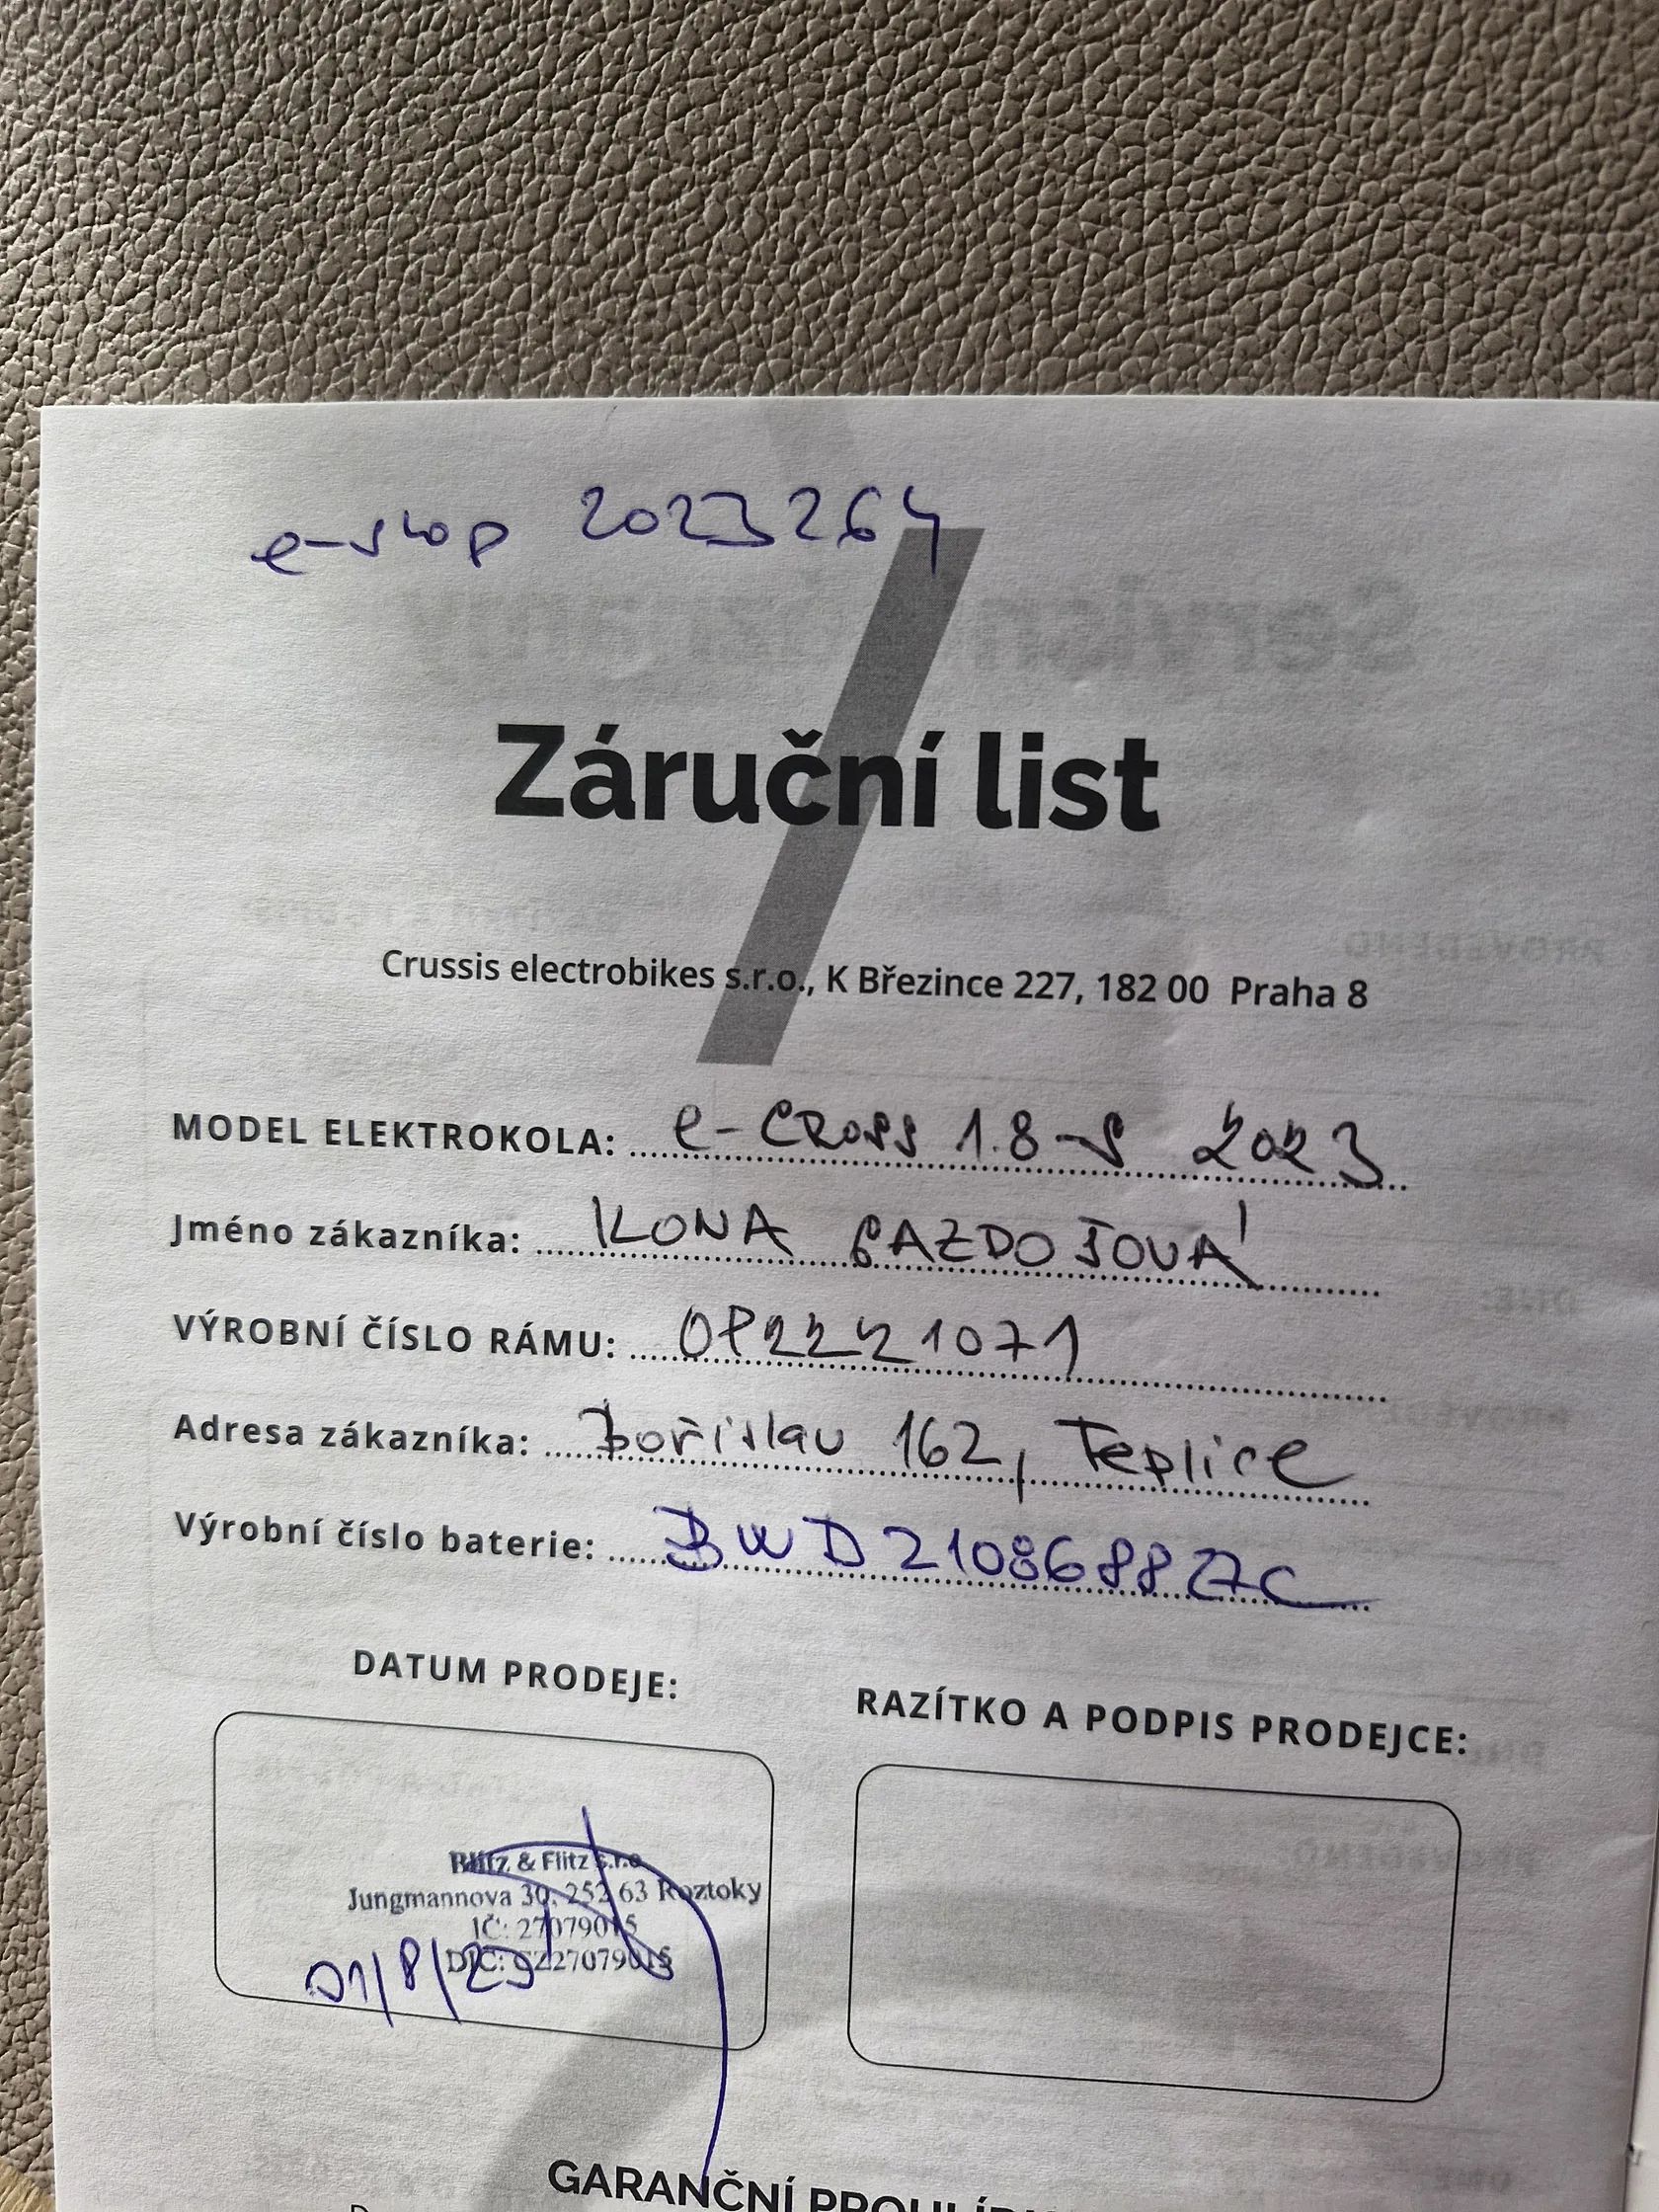 e-shop 2023264
Záruční list
Crussis electrobikes s.r.o., K Březince 227, 182 00 Praha 8
MODEL ELEKTROKOLA: e-CROSS 1.8-S 2023
Jméno zákazníka: ILONA GAZDOŠOVÁ
VÝROBNÍ ČÍSLO RÁMU: OP22221071
Adresa zákazníka: Bořislav 162, Teplice
Výrobní číslo baterie: BWD210868827C
DATUM PRODEJE:
RAZÍTKO A PODPIS PRODEJCE:
Blitz & Flitz s.r.o.
Jungmannova 30, 252 63 Roztoky
IČ: 27079015
DIČ: CZ27079015
01/8/23
GARANČNÍ